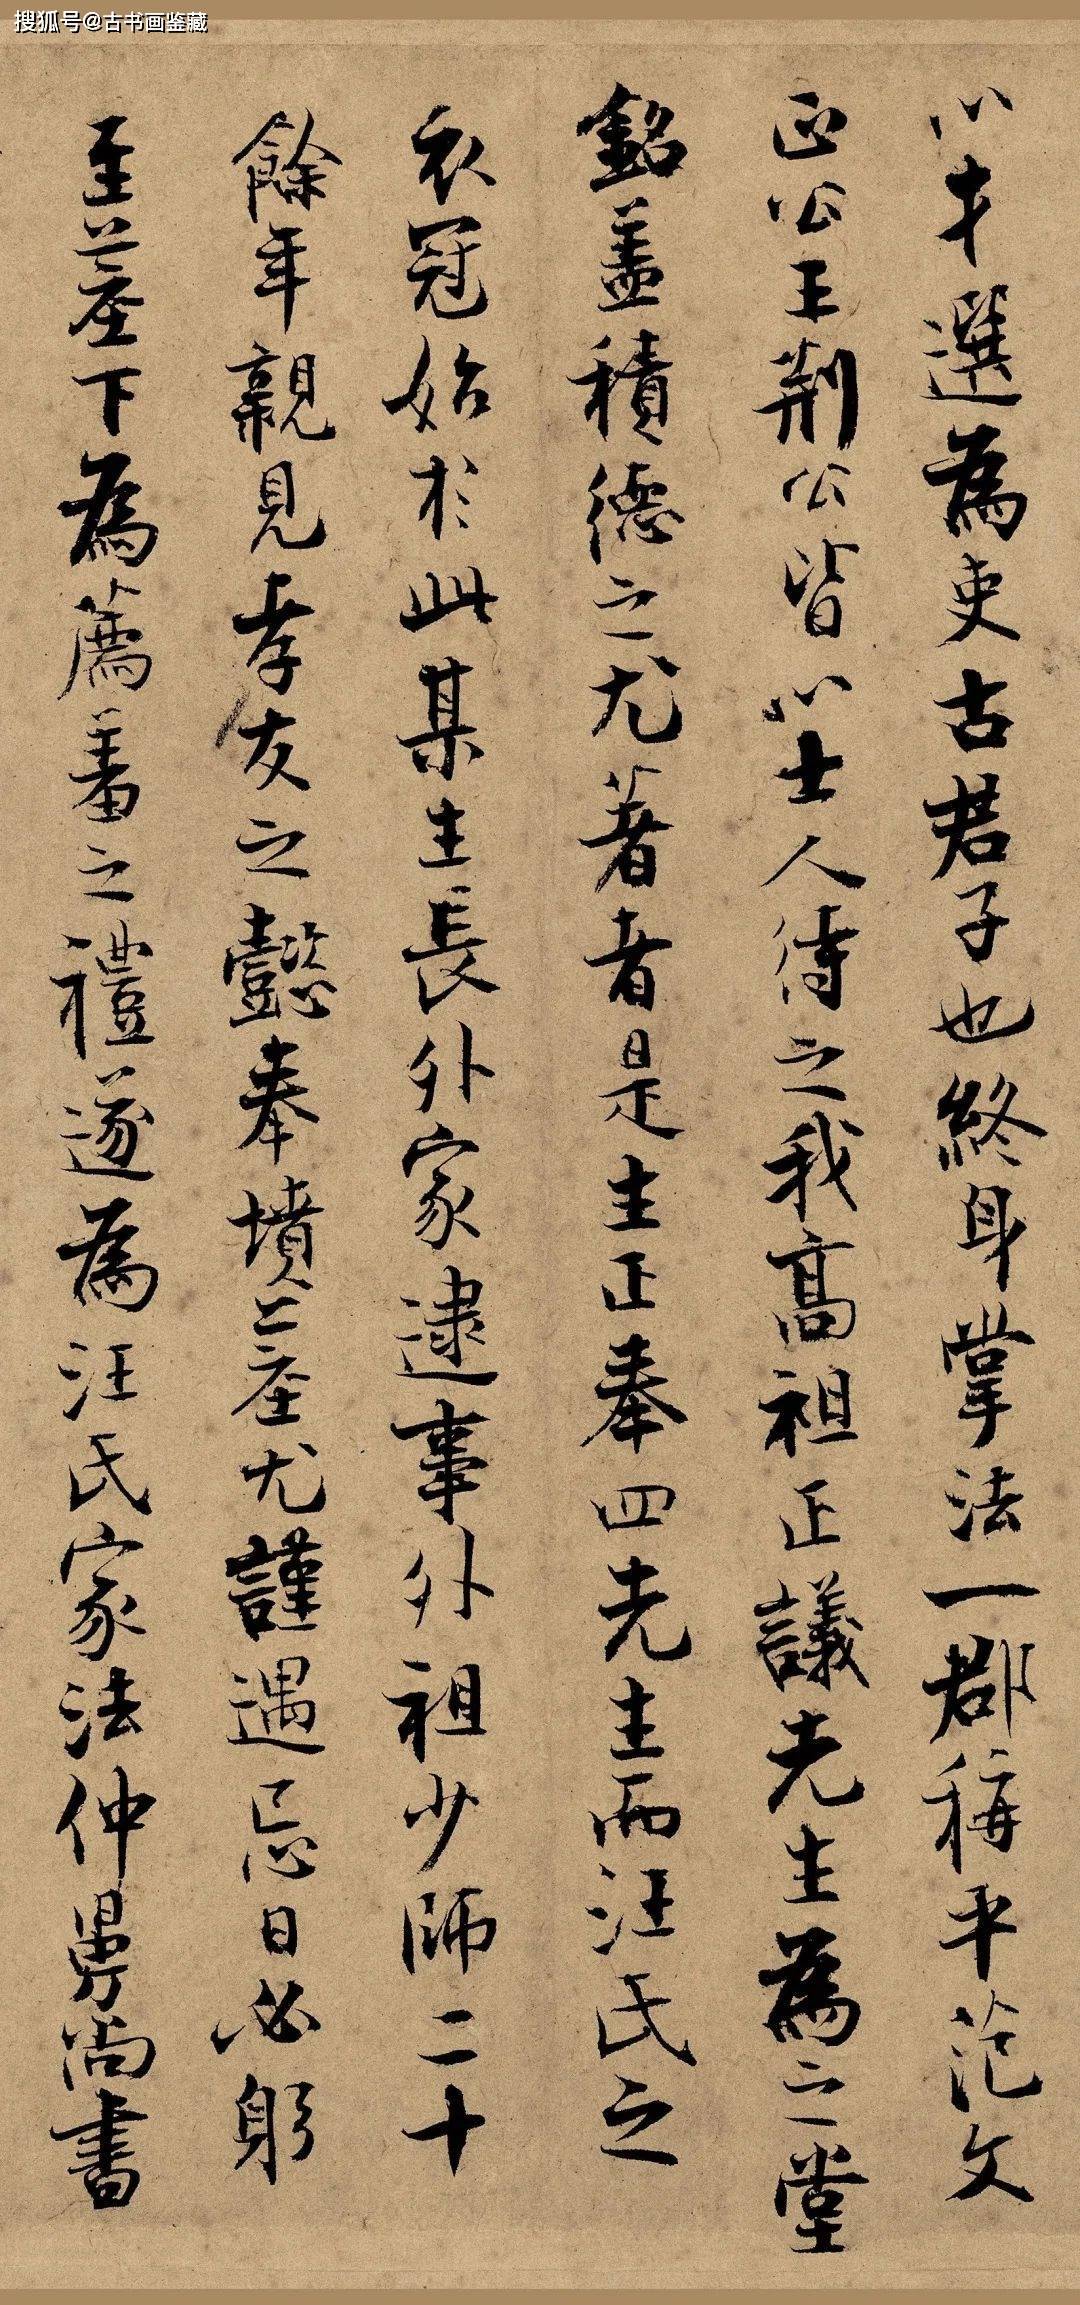 搜狐号@古书画鉴藏
以才選為吏古君子也終身掌法一郡稱平范文
正公王荊公皆以士人待之我高祖正議先生為之堂
銘蓋積德之尤著者是生正奉四先生而汪氏之
衣冠始於此某生長外家逮事外祖少師二十
餘年親見孝友之懿奉墳塋尤謹遇忌日必躬
至墓下為薦羞之禮遂為汪氏家法仲舅尚書